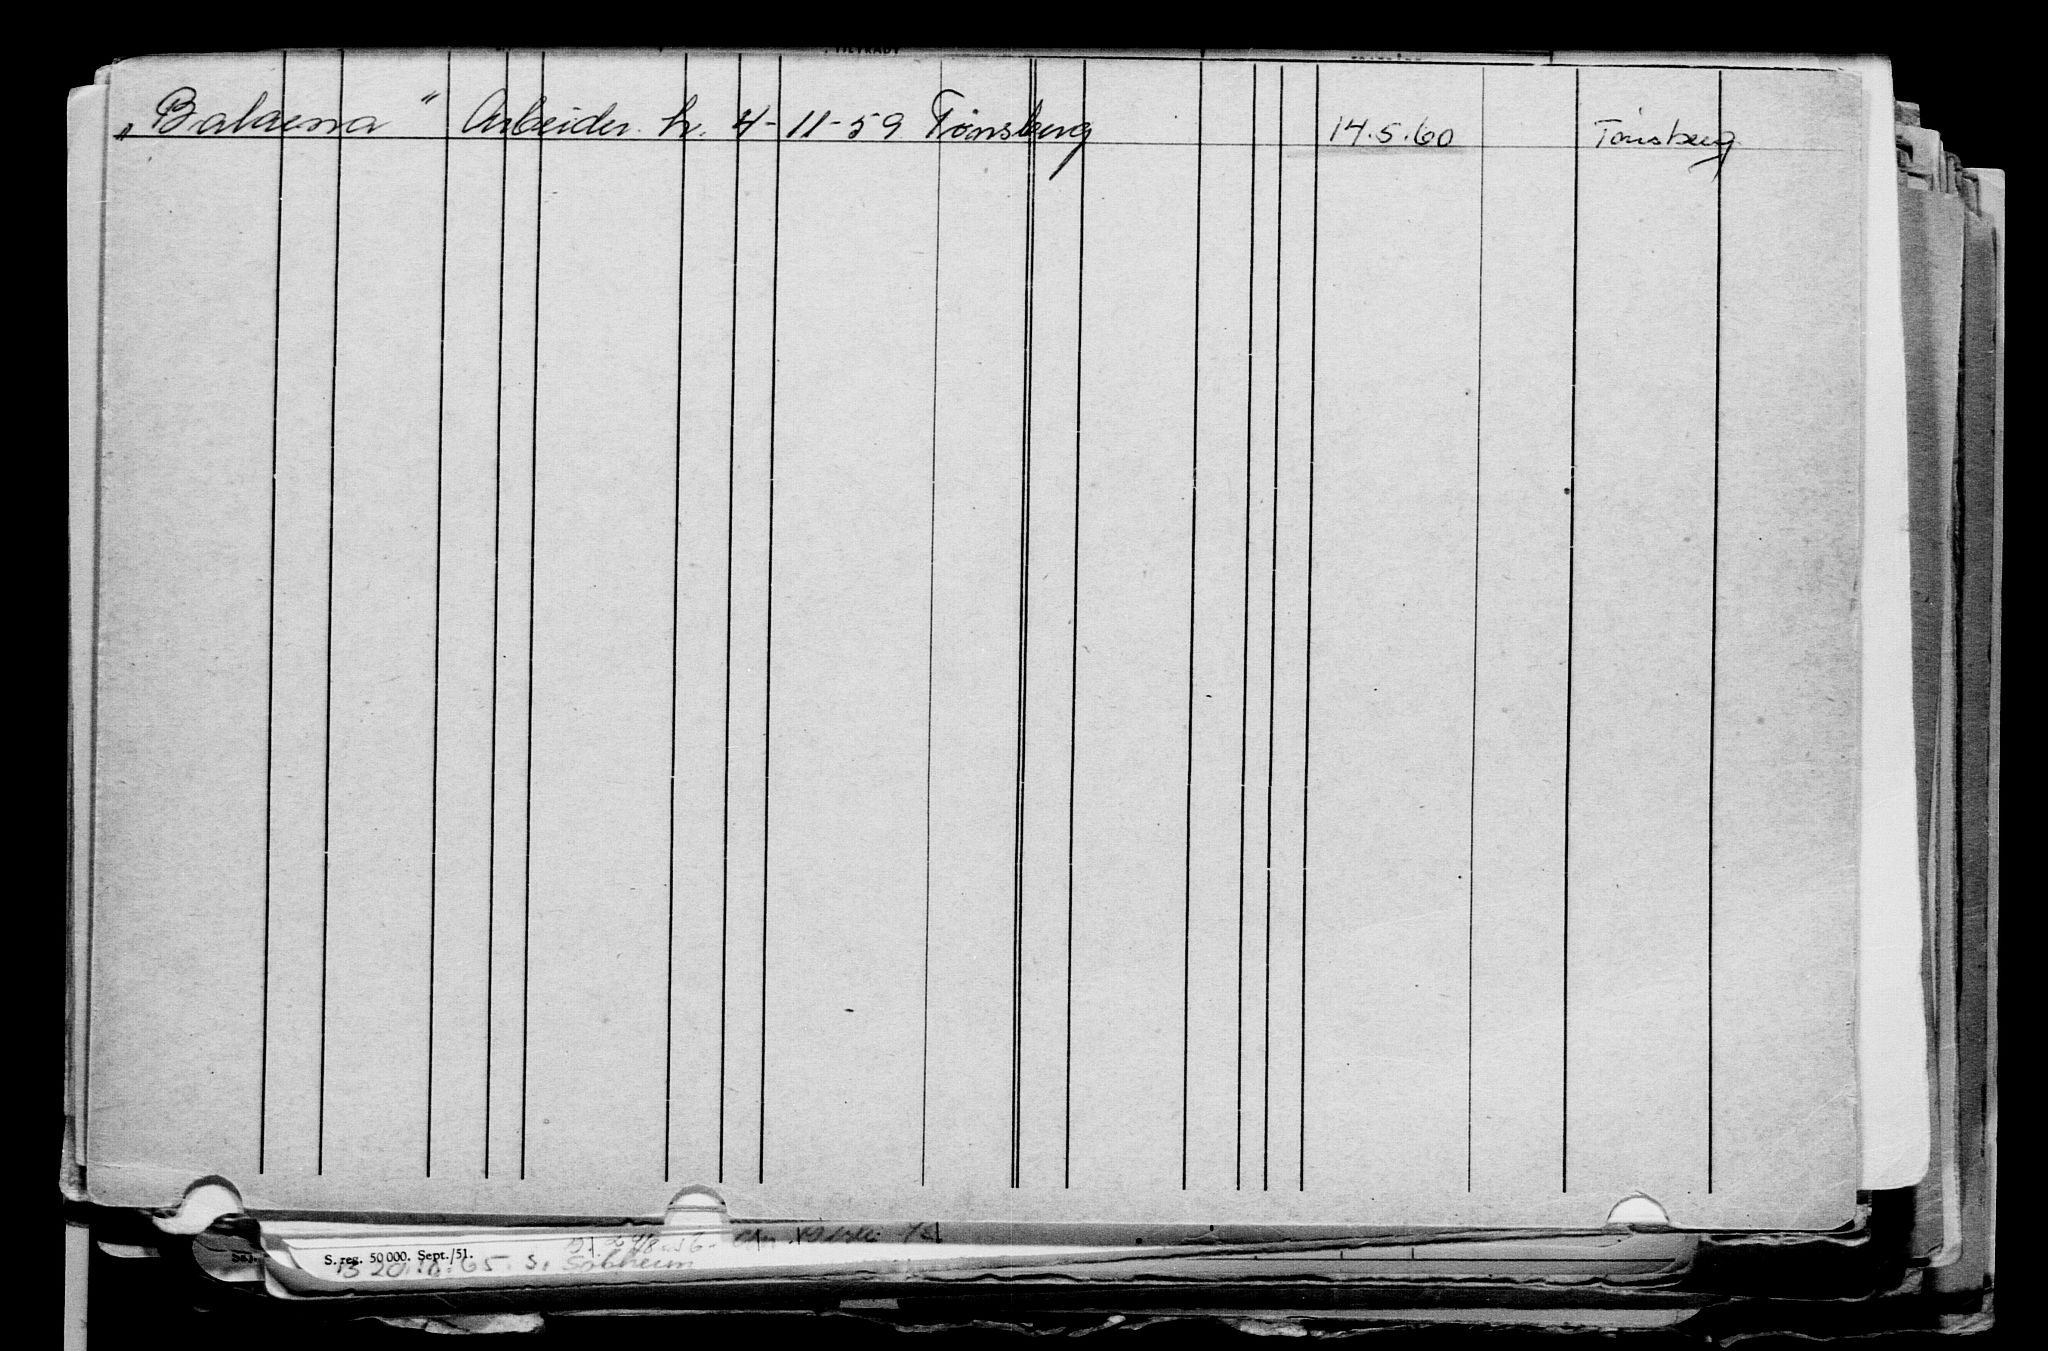 „Balaena" Arbeider h. 4-11-59 Tønsberg 14.5.60 Tønsberg
S. reg. 50 000. Sept./51.